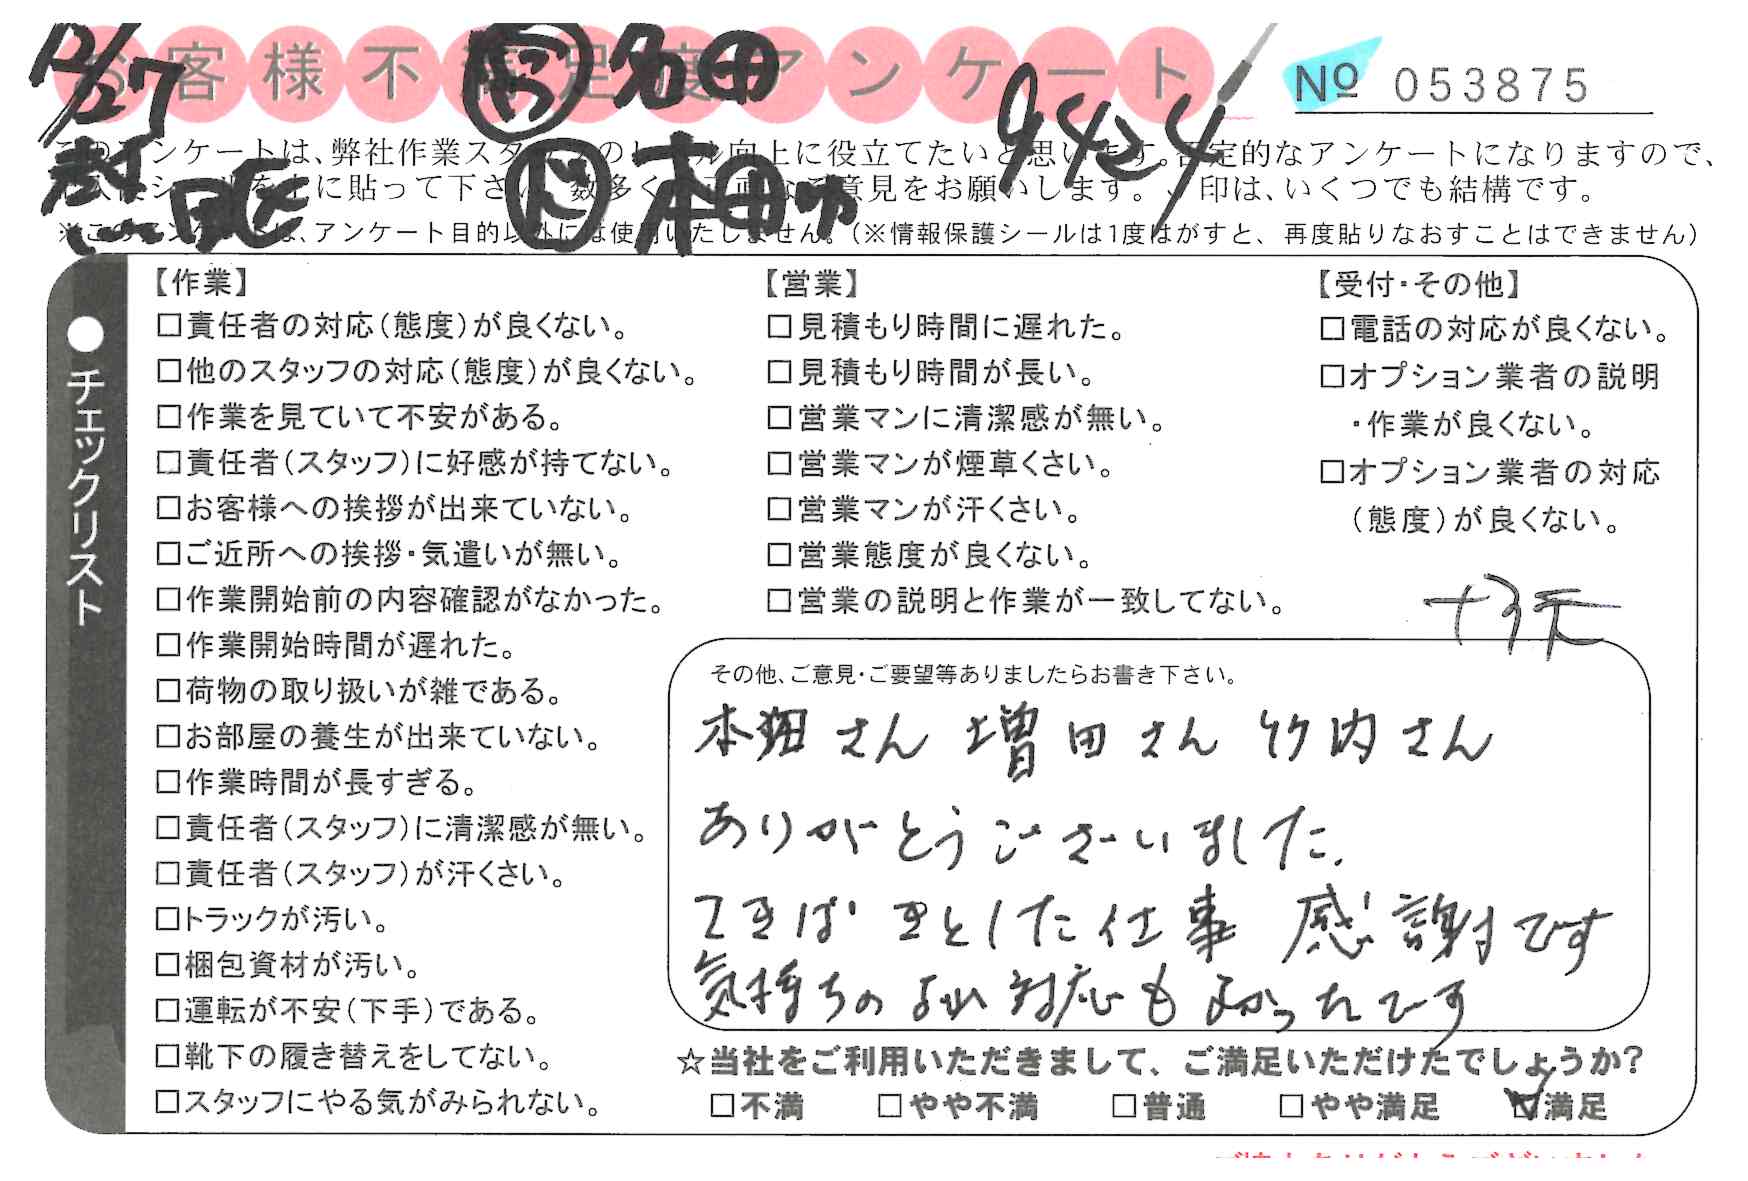 お客様不満足度アンケート
12/27
名田
9424
本畑
№ 053875
このアンケートは、弊社作業スタッフのレベル向上に役立てたいと思います。否定的なアンケートになりますので、
に貼って下さい。数多くの正直なご意見をお願いします。✓印は、いくつでも結構です。
※このアンケートは、アンケート目的以外には使用いたしません。(※情報保護シールは1度はがすと、再度貼りなおすことはできません)
●チェックリスト
【作業】
□責任者の対応(態度)が良くない。
□他のスタッフの対応(態度)が良くない。
□作業を見ていて不安がある。
□責任者(スタッフ)に好感が持てない。
□お客様への挨拶が出来ていない。
□ご近所への挨拶・気遣いが無い。
□作業開始前の内容確認がなかった。
□作業開始時間が遅れた。
□荷物の取り扱いが雑である。
□お部屋の養生が出来ていない。
□作業時間が長すぎる。
□責任者(スタッフ)に清潔感が無い。
□責任者(スタッフ)が汗くさい。
□トラックが汚い。
□梱包資材が汚い。
□運転が不安(下手)である。
□靴下の履き替えをしてない。
□スタッフにやる気がみられない。
【営業】
□見積もり時間に遅れた。
□見積もり時間が長い。
□営業マンに清潔感が無い。
□営業マンが煙草くさい。
□営業マンが汗くさい。
□営業態度が良くない。
□営業の説明と作業が一致してない。
【受付・その他】
□電話の対応が良くない。
□オプション業者の説明
・作業が良くない。
□オプション業者の対応
(態度)が良くない。
その他、ご意見・ご要望等ありましたらお書き下さい。
本畑さん 増田さん 竹内さん
ありがとうございました.
てきぱきとした仕事 感謝です
気持ちのよい対応もよかったです
☆当社をご利用いただきまして、ご満足いただけたでしょうか?
□不満 □やや不満 □普通 □やや満足 ☑満足